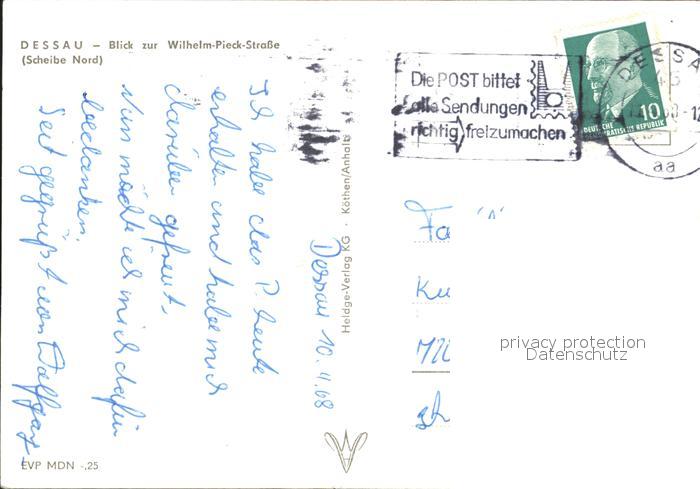 DESSAU – Blick zur Wilhelm-Pieck-Straße
(Scheibe Nord)
Die POST bittet
alle Sendungen
richtig freizumachen
DESSAU
45
aa
10
DEUTSCHE
DEMOKRATISCHE REPUBLIK
Dessau 10.4.68
Ich habe das P. heute
erhalten und habe mich
darüber gefreut.
Nun möchte ich mich dafür
bedanken.
Seit gegrüßt von Wolfgang
Heldge-Verlag KG · Köthen/Anhalt
Fa
Ku
privacy protection
Datenschutz
EVP MDN -,25